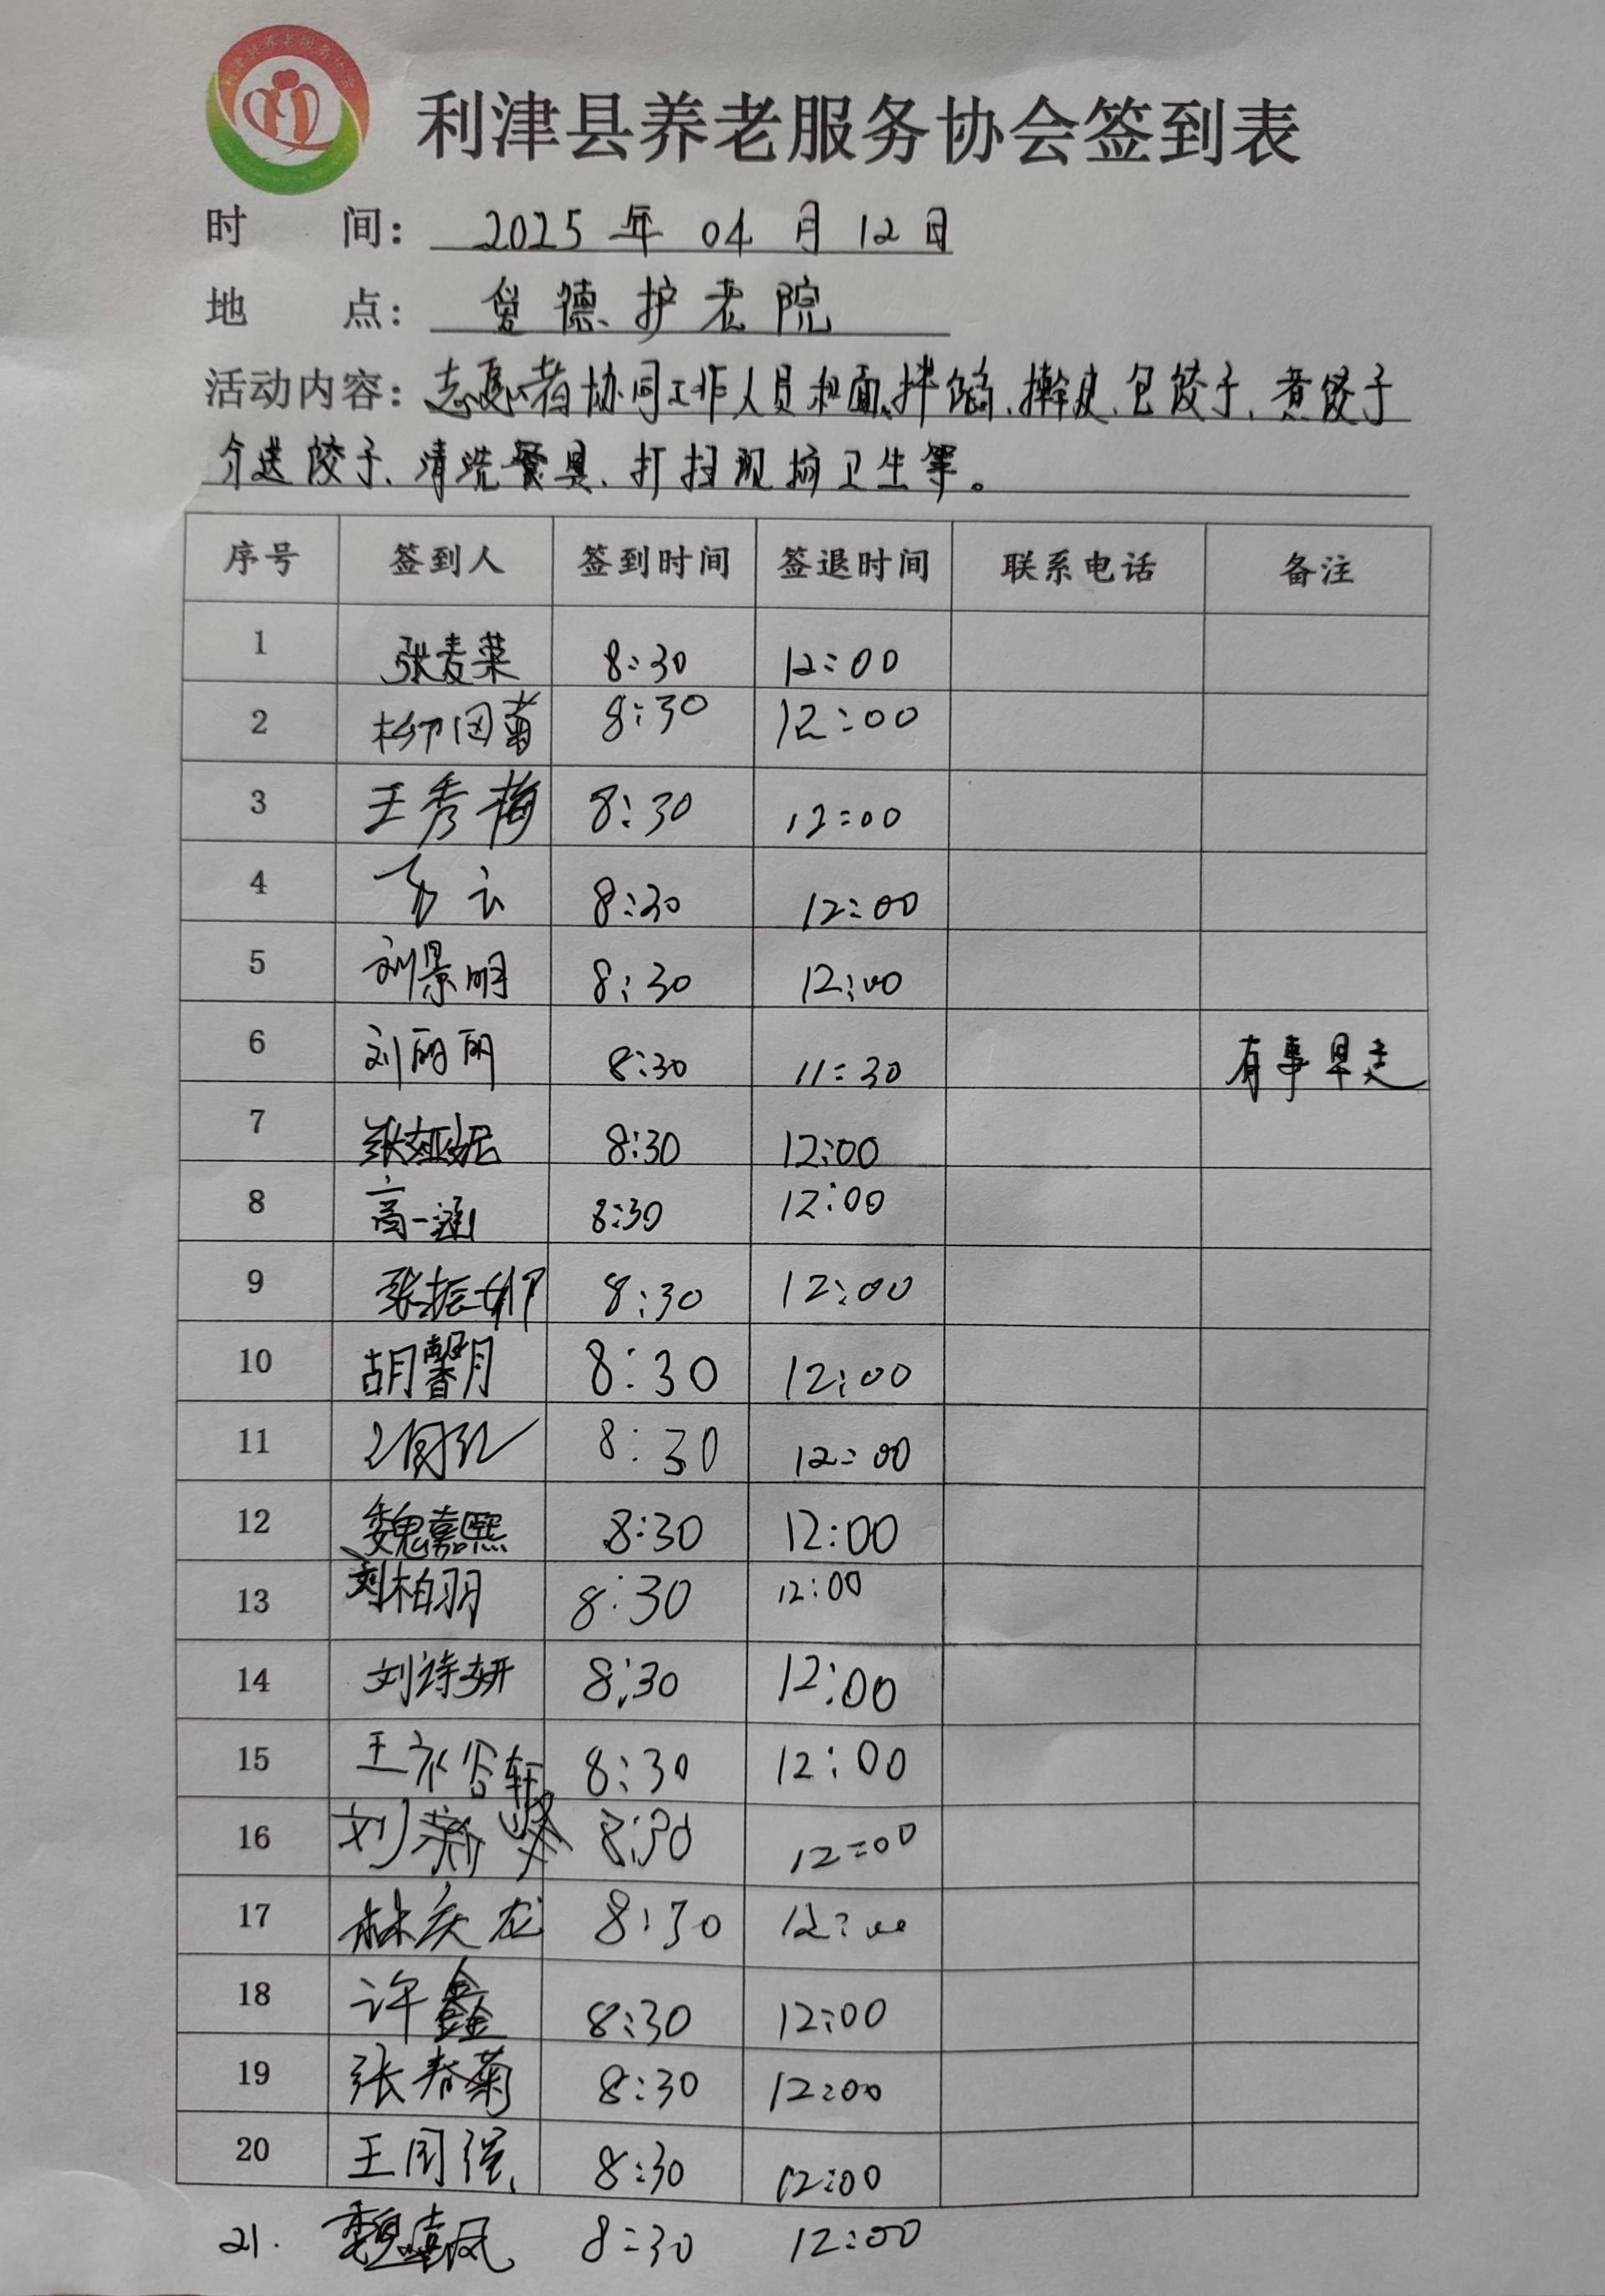 利津县养老服务协会
利津县养老服务协会签到表
时 间: 2025 年 04 月 12 日
地 点: 德护老院
活动内容: 志愿者协同工作人员和面、拌馅、擀皮、包饺子、煮饺子
分送饺子、清洗餐具、打扫现场卫生等。
序号 签到人 签到时间 签退时间 联系电话 备注
1 张麦菜 8:30 12:00
2 柳国菊 8:30 12:00
3 王秀梅 8:30 12:00
4 8:30 12:00
5 刘景明 8:30 12:00
6 刘丽丽 8:30 11:30 有事早走
7 张娅妮 8:30 12:00
8 高一涵 8:30 12:00
9 张振娜 8:30 12:00
10 胡馨月 8:30 12:00
11 8:30 12:00
12 魏嘉熙 8:30 12:00
13 刘柏羽 8:30 12:00
14 刘诗妍 8:30 12:00
15 王 轩 8:30 12:00
16 刘新 8:30 12:00
17 林庆龙 8:30 12:00
18 许鑫 8:30 12:00
19 张春菊 8:30 12:00
20 王国强 8:30 12:00
21. 魏 凤 8:30 12:00